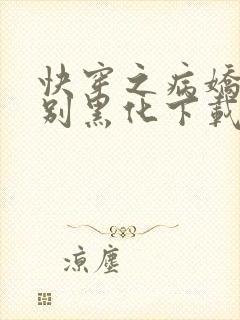 快穿之病嬌
别黑化下載
涼塵